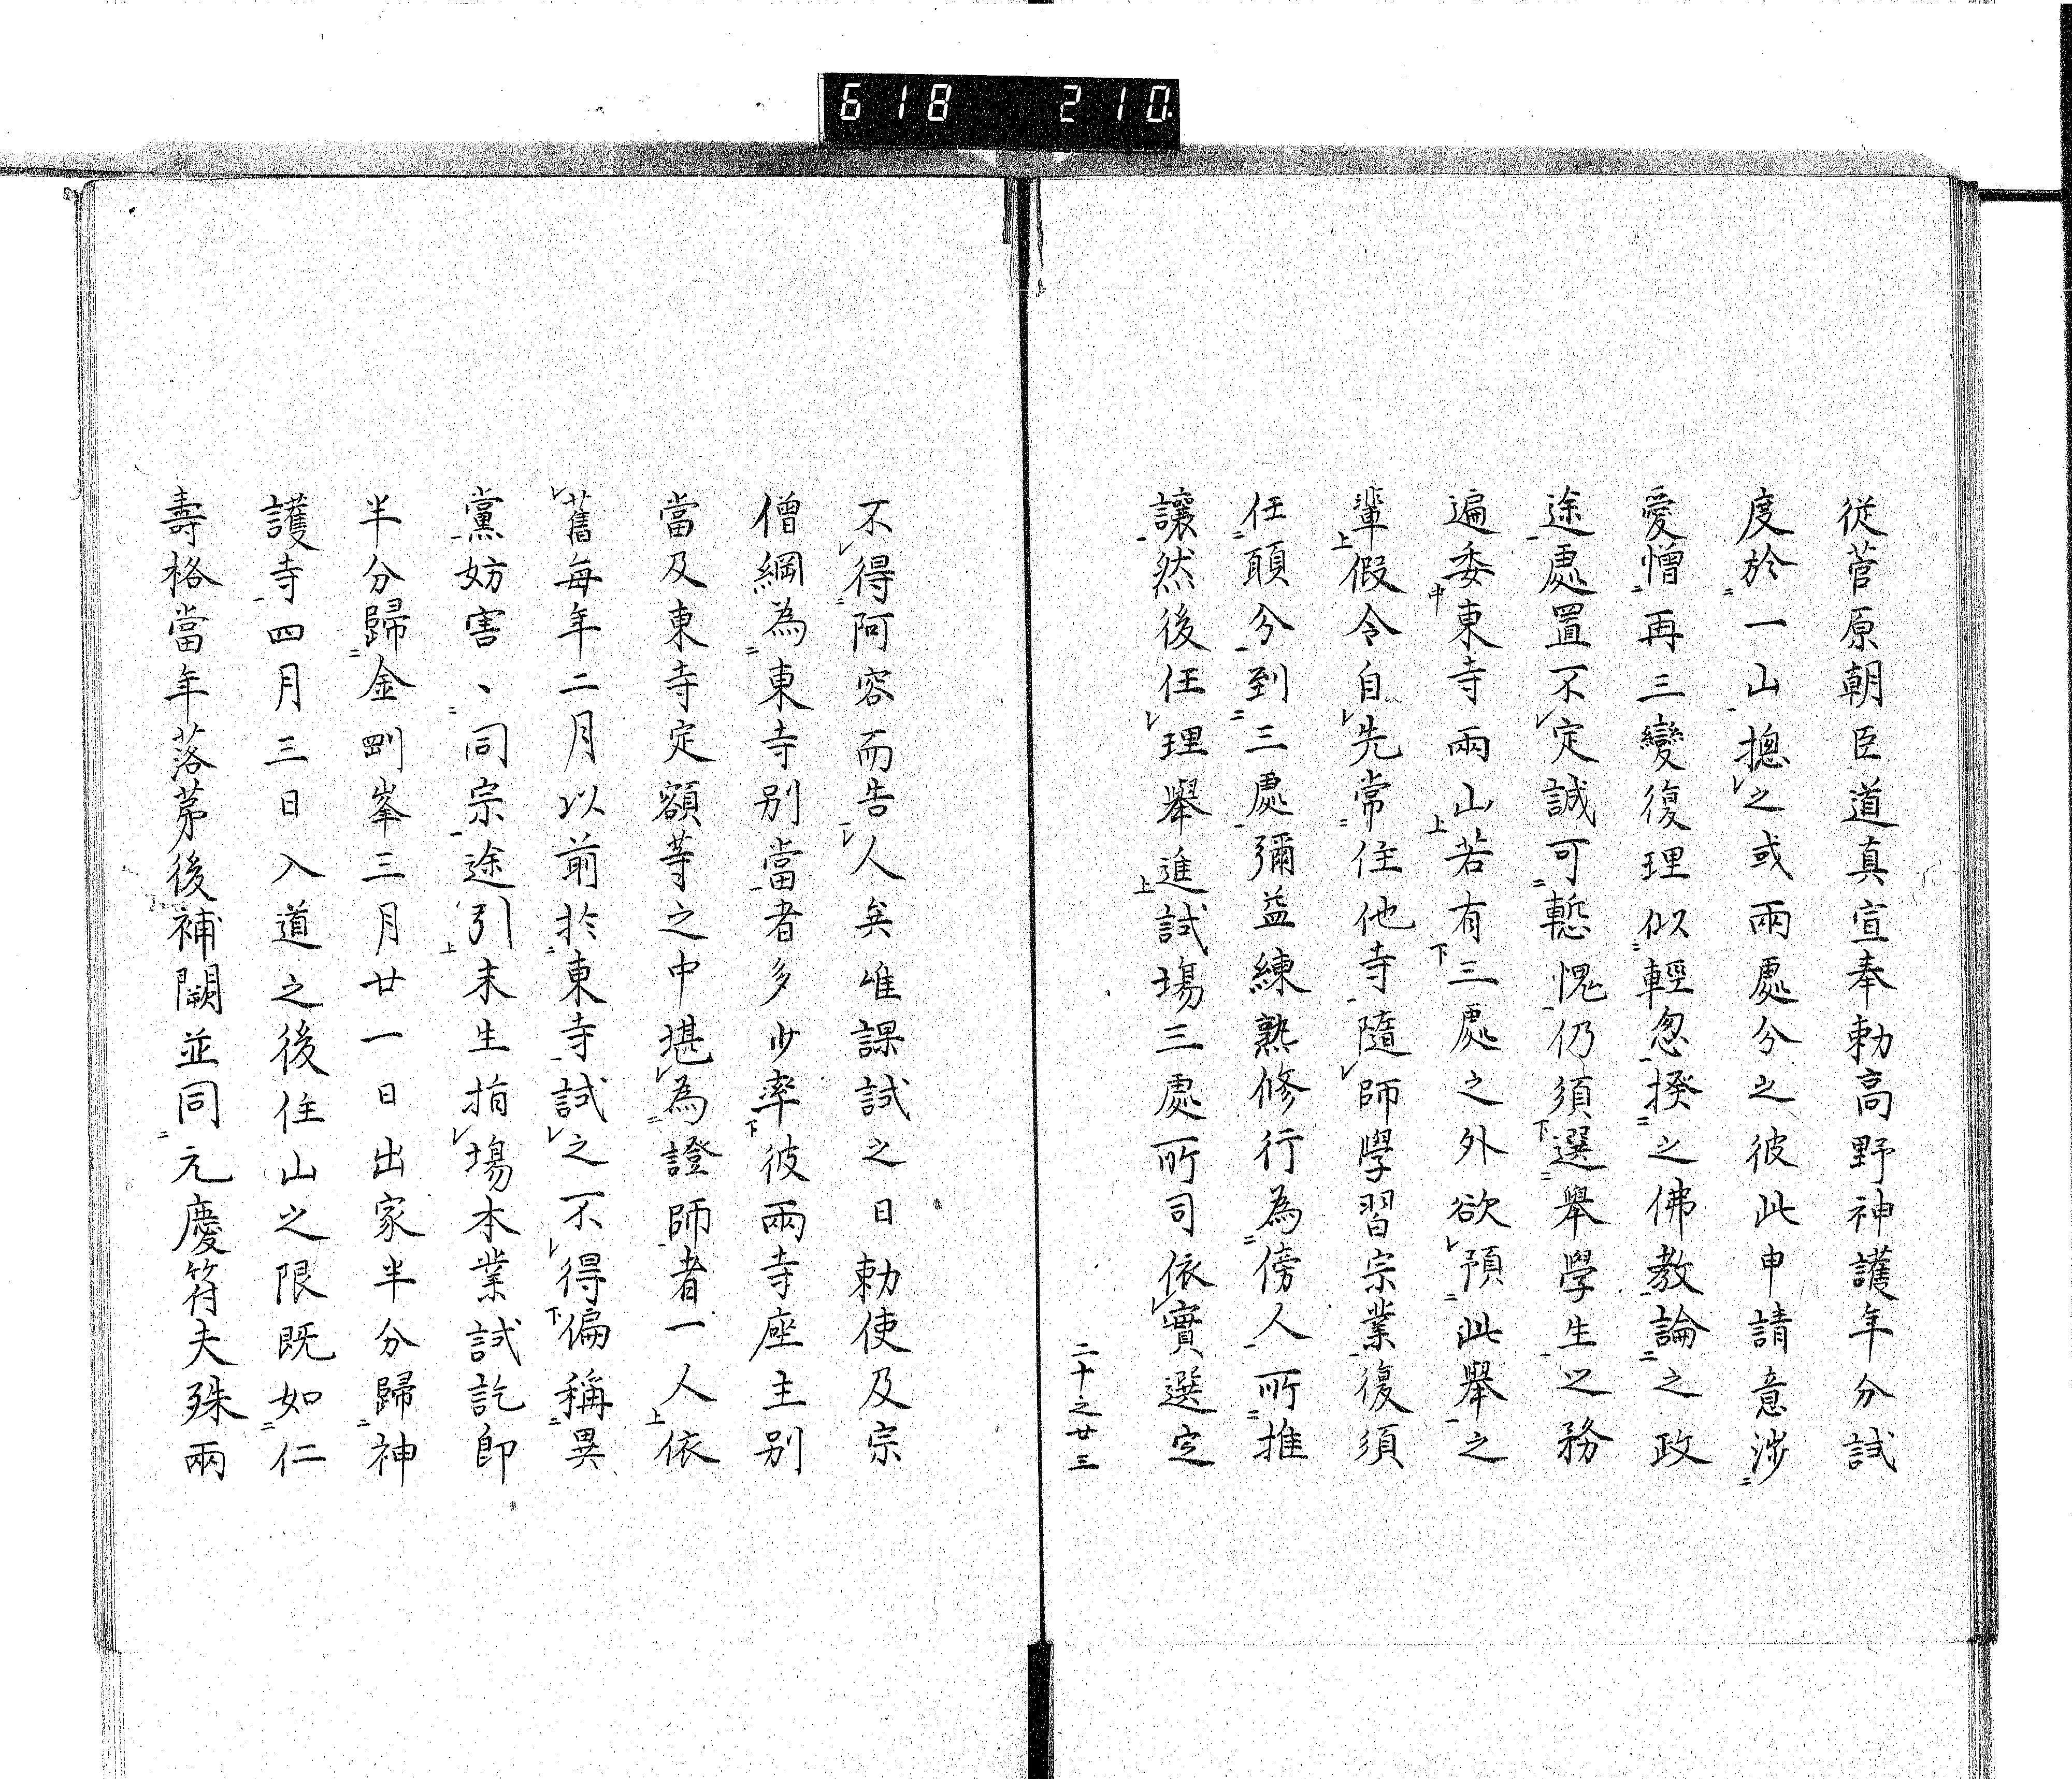 618 210
從菅原朝臣道真宣奉勅高野神護年分試
度於一山摠之或兩處分之彼此申請意涉
愛憎再三變復理似輕忽揆之佛教論之政
途處置不定誠可慙愧仍須選舉學生之務
遍委東寺兩山若有三處之外欲預此舉之
輩假令自先常住他寺隨師學習宗業復須
任頭分到三處彌益練熟修行為傍人所推
讓然後任理舉進試場三處所司依實選定
二十之廿三
不得阿容而告人矣唯課試之日勅使及宗
僧綱為東寺別當者多少率彼兩寺座主別
當及東寺定額等之中堪為證師者一人依
舊每年二月以前於東寺試之不得偏稱異
黨妨害、同宗途引末生捐場本業試訖即
半分歸金剛峯三月廿一日出家半分歸神
護寺四月三日入道之後住山之限既如仁
壽格當年落第後補闕並同元慶符夫殊兩